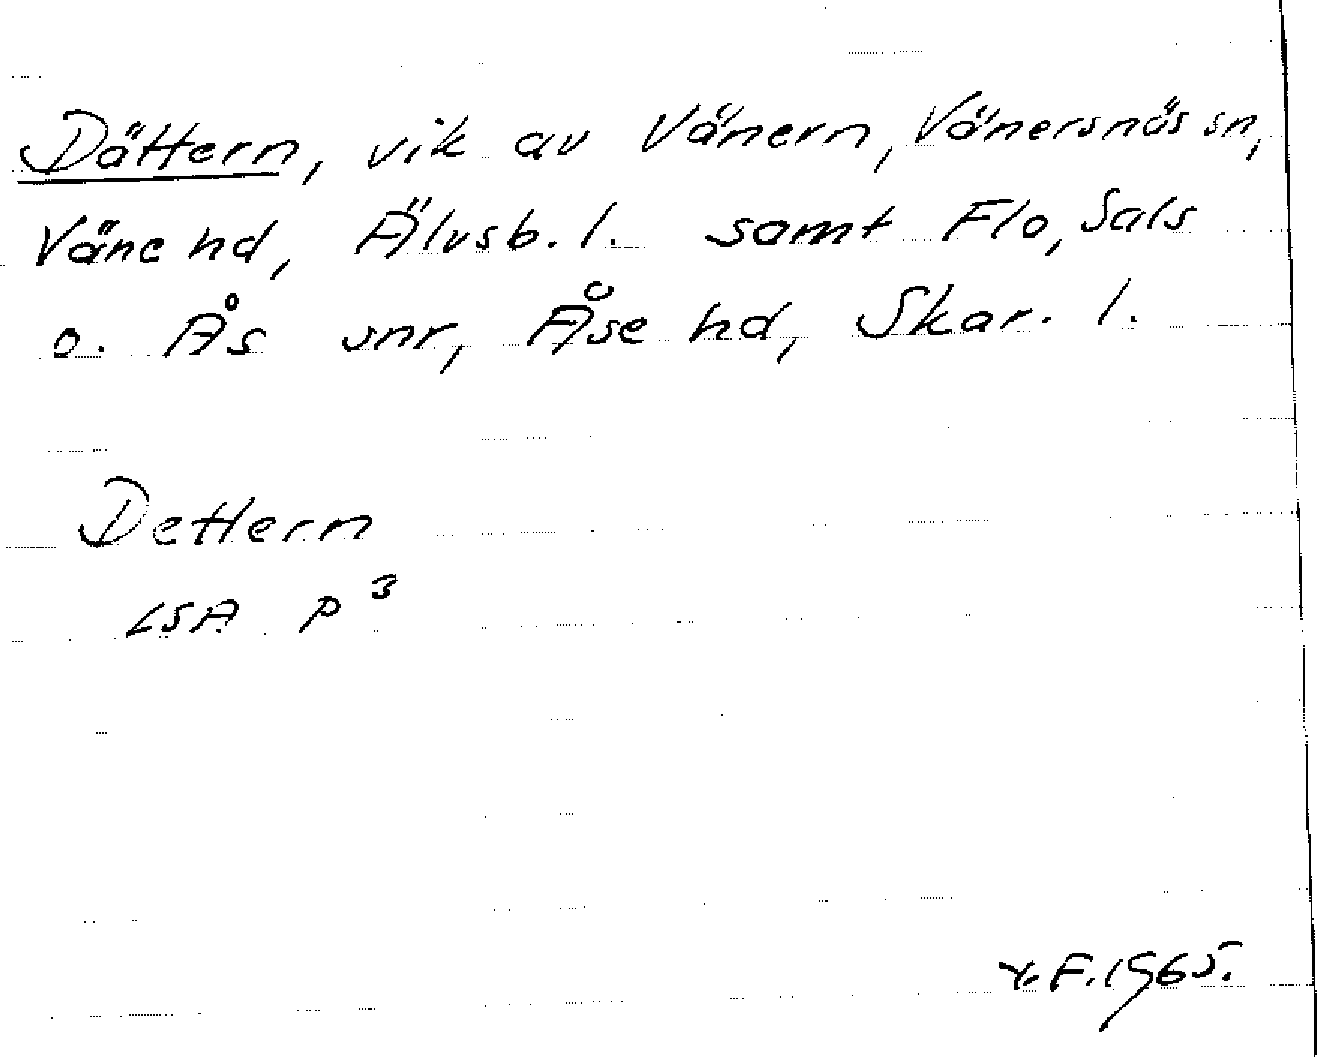 Dättern, vik av Vänern, Vänersnäs sn,
Väne hd, Älvsb. l. samt Flo, Sals
o. Ås snr, Åse hd, Skar. l.
Dettern
LSA P 3
F. 1965.